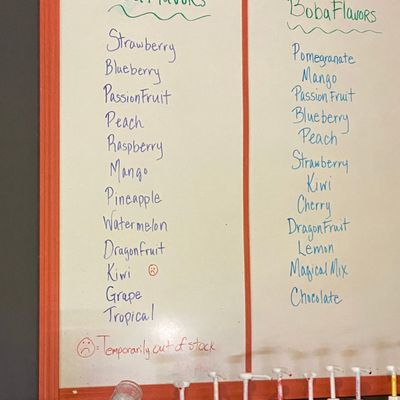 Flavors
Strawberry
Blueberry
PassionFruit
Peach
Raspberry
Mango
Pineapple
Watermelon
Dragonfruit
Kiwi
Grape
Tropical
= Temporarily out of stock
Boba Flavors
Pomegranate
Mango
Passion Fruit
Blueberry
Peach
Strawberry
Kiwi
Cherry
DragonFruit
Lemon
Magical Mix
Chocolate